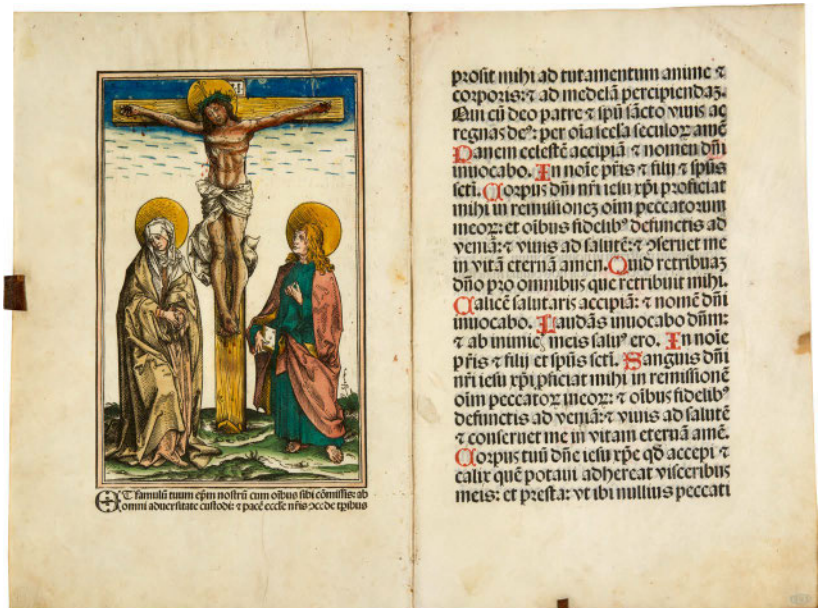 Et famulū tuum epm̄ nostrū cum oībus sibi cōmissis: ab
omni aduersitate custodi: ⁊ pacē eccl̄ie nr̄is ↄcede tp̄ibus
prosit mihi ad tutamentum anime ⁊
corporis: ⁊ ad medelā percipiendaꝫ.
Qui cū deo patre ⁊ spū sācto viuis ac
regnas deꝰ: per oīa secl̄a seculoꝝ amē
Panem celestē accipiā ⁊ nomen dn̄i
inuocabo. In noīe pr̄is ⁊ filij ⁊ spūs
sctī. Corpus dn̄i nr̄i iesu xp̄i proficiat
mihi in remissioneꝫ oīm peccatorum
meoꝝ: et oībus fidelibꝰ defunctis ad
veniā: ⁊ viuis ad salutē: ⁊ ↄseruet me
in vitā eternā amen. Quid retribuaꝫ
dn̄o pro omnibus que retribuit mihi.
Calicē salutaris accipiā: ⁊ nomē dn̄i
inuocabo. Laudās inuocabo dn̄m:
⁊ ab inimic̄ meis saluꝰ ero. In noīe
pr̄is ⁊ filij et spūs sctī. Sanguis dn̄i
nr̄i iesu xp̄i ꝓficiat mihi in remissionē
oīm peccatoꝝ meoꝝ: ⁊ oībus fidelibꝰ
defunctis ad veniā: ⁊ viuis ad salutē
⁊ conseruet me in vitam eternā amē.
Corpus tuū dn̄e iesu xp̄e qd̄ accepi ⁊
calix quē potaui adhereat visceribus
meis: et presta: vt ibi nullius peccati